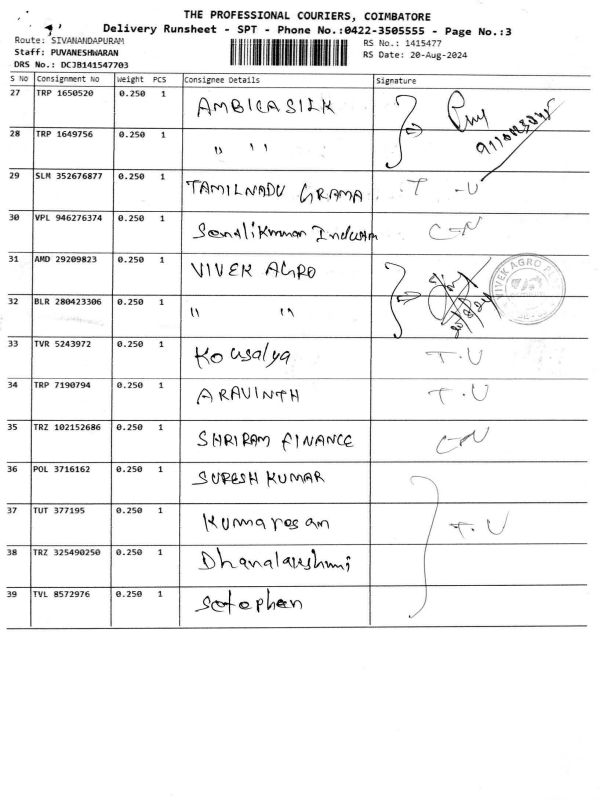 THE PROFESSIONAL COURIERS, COIMBATORE
Delivery Runsheet - SPT - Phone No.:0422-3505555 - Page No.:3
Route: SIVANANDAPURAM RS No.: 1415477
Staff: PUVANESHWARAN RS Date: 20-Aug-2024
DRS No.: DCJB141547703
S No Consignment No Weight PCS Consignee Details Signature
27 TRP 1650520 0.250 1 AMBICA SILK
28 TRP 1649756 0.250 1 " "
29 SLM 352676877 0.250 1 TAMILNADU GRAMA T-U
30 VPL 946276374 0.250 1
31 AMD 29209823 0.250 1 VIVEK AGRO VIVEK AGRO
32 BLR 280423306 0.250 1 " "
33 TVR 5243972 0.250 1 Kousalya T.U
34 TRP 7190794 0.250 1 ARAVINTH T.U
35 TRZ 102152686 0.250 1 SHRIRAM FINANCE
36 POL 3716162 0.250 1 SURESH KUMAR
37 TUT 377195 0.250 1 Kumaresan T.U
38 TRZ 325490250 0.250 1 Dhanalakshmi
39 TVL 8572976 0.250 1